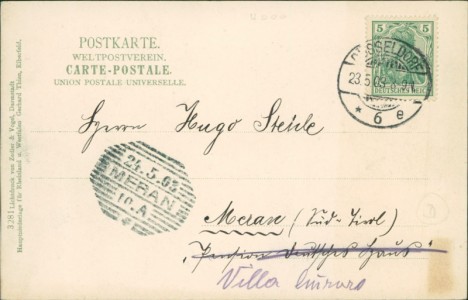 POSTKARTE.
WELTPOSTVEREIN.
CARTE-POSTALE.
UNION POSTALE UNIVERSELLE.
5 5
DEUTSCHES REICH
DÜSSELDORF
23.5.03
* 6 e
Herrn Hugo Stehle
24.5.03
MERAN
10.A
Meran (Süd-Tirol)
"Pension Deutsches Haus"
Villa
3281 Lichtdruck von Zedler & Vogel, Darmstadt.
Hauptniederlage für Rheinland u. Westfalen Gerhard Thien, Elberfeld.